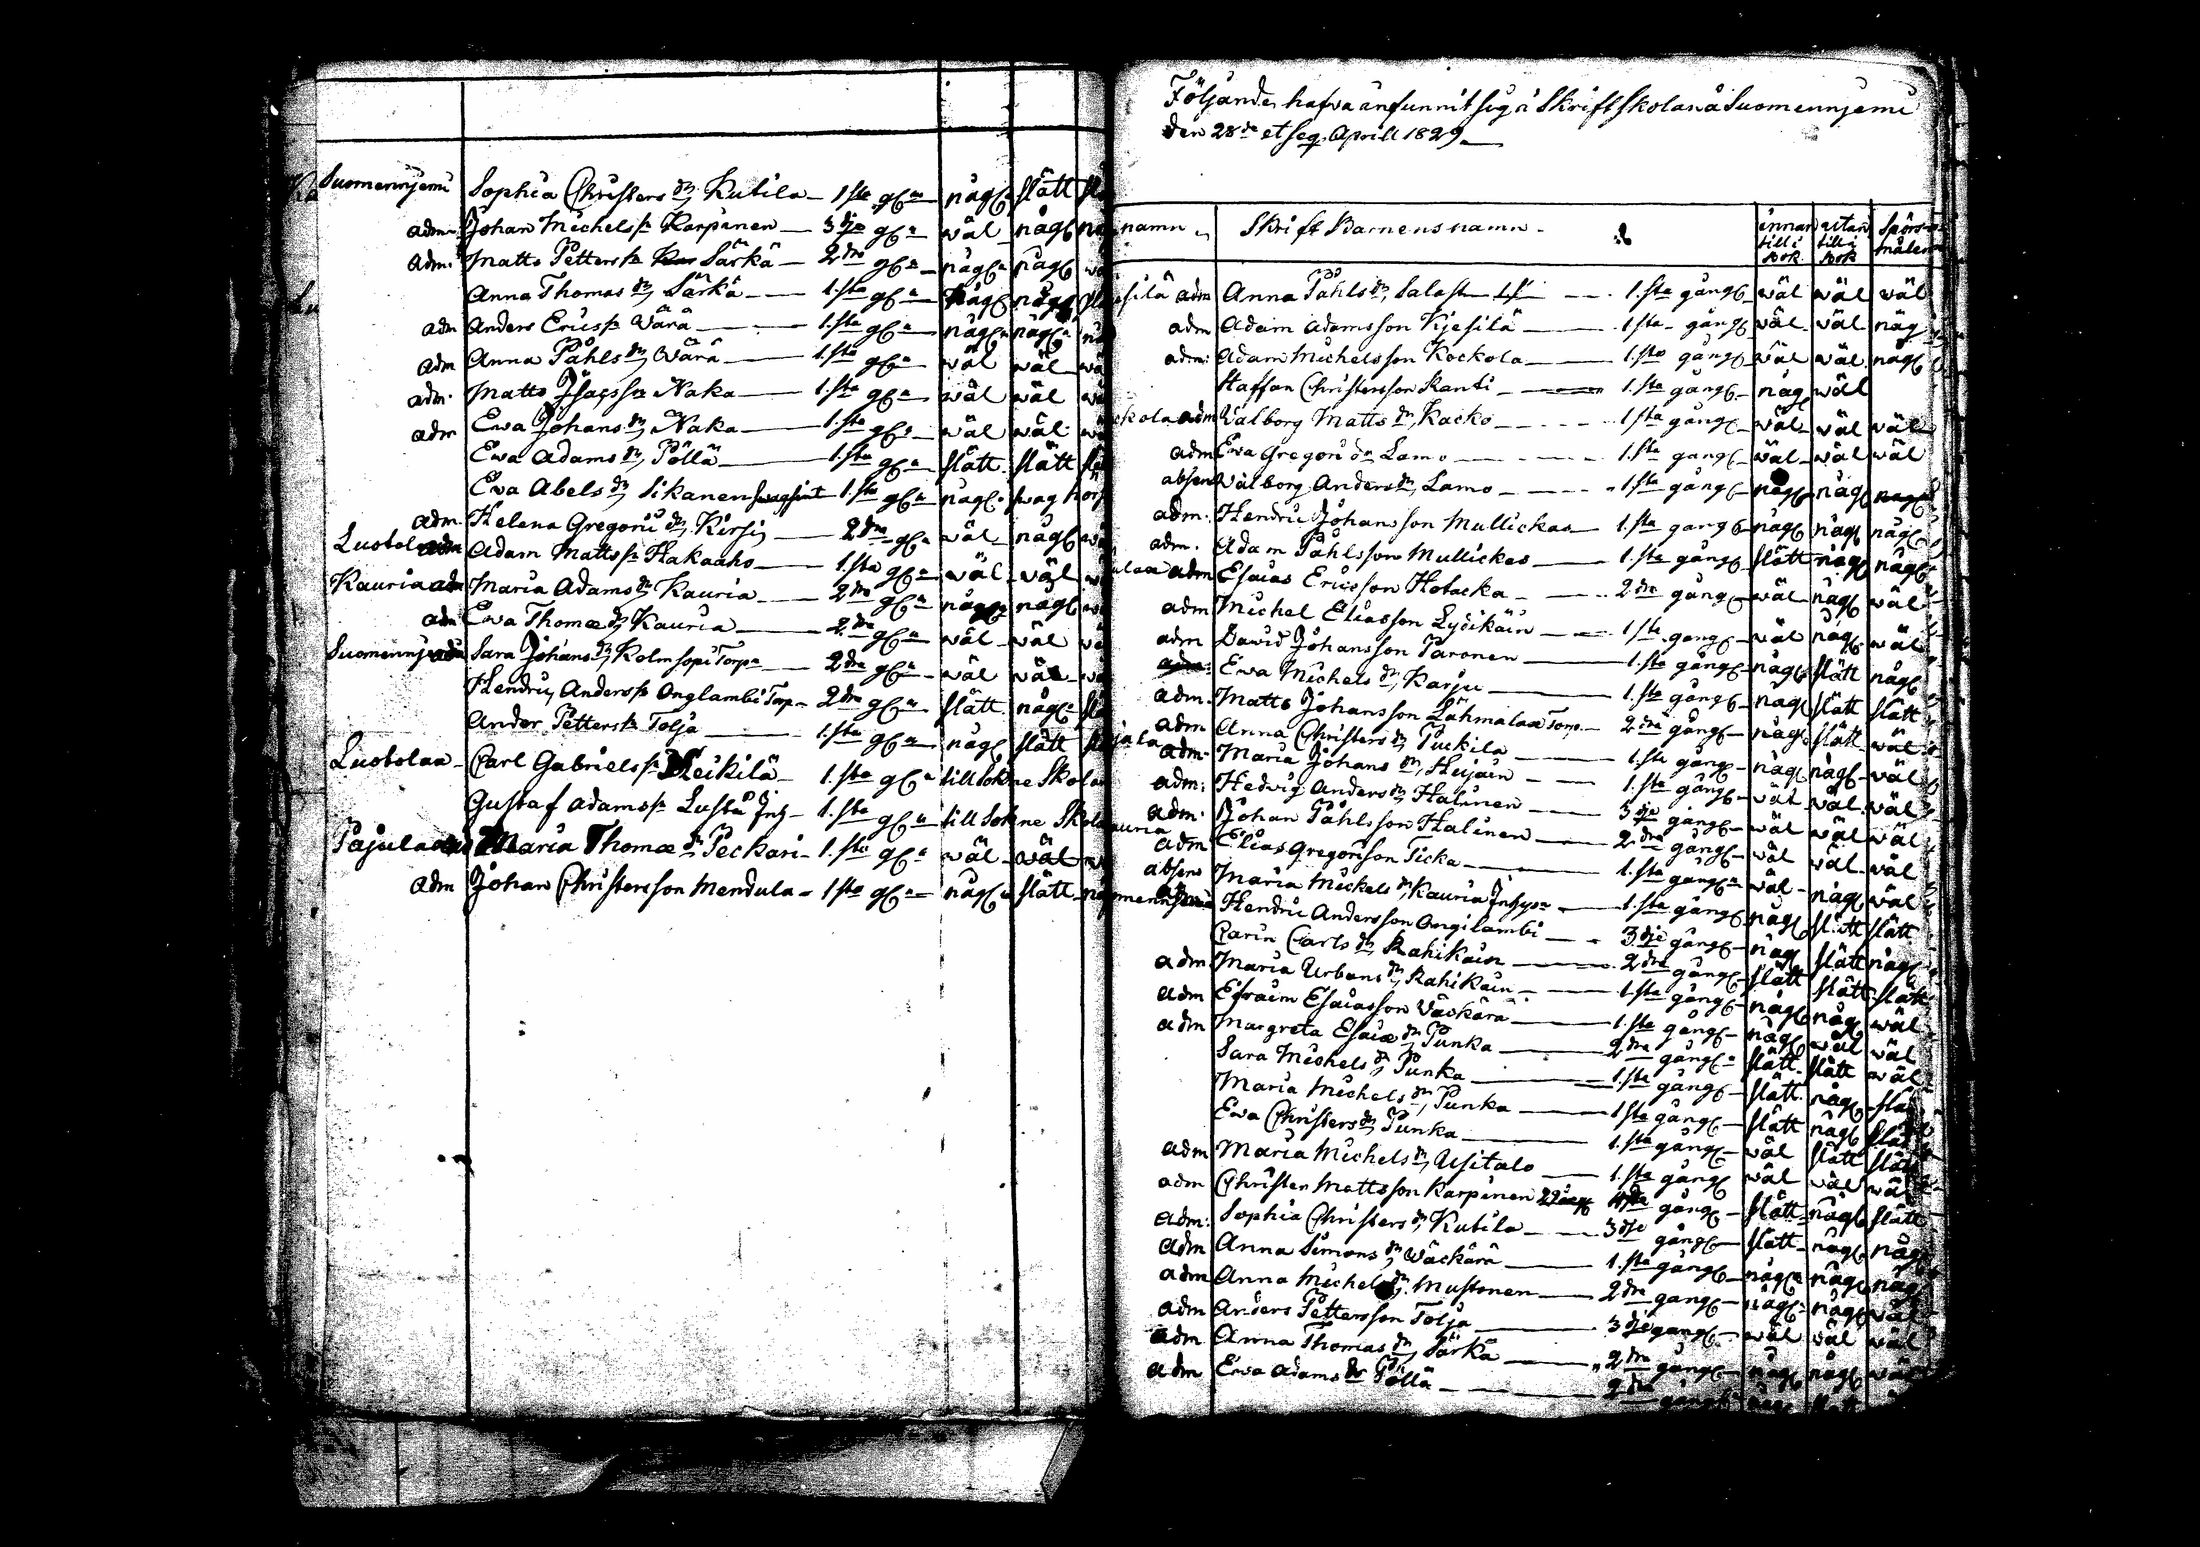 Suomennjemi Sophia Christers dr Kutila 1sta gg någl. slätt
adm. Johan Michels sn Karpinen 3dje gg wäl någl
adm. Matts Petters sn Särkä 2dra gg någl någl
Anna Thomas dr Särkä 1sta gg någl någl
adm Anders Erics sn Wärä 1sta gg någl någl
adm Anna Påhls dr Wärä 1sta gg wäl wäl
adm. Matts Isacs sn Naka 1sta gg wäl wäl
adm Ewa Johans dr Naka 1sta gg wäl wäl
Ewa Adams dr Pöllä 1sta gg slätt slätt
Eva Abels dr Sikanen 1sta gg någl. swag
adm. Helena Gregorii dr Kirsi 2dra gg wäl någl
Adam Matts sn Hakaaho 1sta gg wäl wäl
Kauria adm Maria Adams dr Kauria 2dra gg någl någl
adm Ewa Thomæ dr Kauria 2dra gg wäl wäl
Sara Johans dr Kolmsopi Torp 2dra gg wäl wäl
Hendric Anders sn Onglambi Torp 2dra gg slätt någl
Ander Petters sn Tolja 1sta gg någl slätt
Luotolaa Carl Gabriels sn Heikilä 1sta gg till Sokne Skola
Gustaf Adams sn Lusta Inh 1sta gg till Sokne Skola
Maria Thomæ dr Peckari 1sta gg wäl wäl
adm Johan Christersson Mendula 1sta gg någl slätt
Följande hafva infunnit sig i Skriftskolan å Suomennjemi
den 28de et seq. Aprill 1829
namn Skrift Barnens namn innan till i bok utan till i bok Spörsmålen
adm Anna Påhls dr 1sta gång wäl wäl wäl
adm Adam Adamsson Kjesilä 1sta gång wäl wäl någ
adm: Adam Michelsson Kockola 1sta gång wäl wäl någl
Staffan Christersson Kanti 1sta gång någ wäl
adm Walborg Matts dr Kacko 1sta gång wäl wäl wäl
adm Ewa Gregori dr Lamo 1sta gång wäl wäl wäl
absens Walborg Anders dr Lamo 1sta gång någl någl någl
adm. Hendric Johansson Mullickas 1sta gång någl någl någl
adm. Adam Påhlsson Mullickas 1sta gång slätt någl någl
adm Esaias Ericsson Hotacka 2dra gång wäl någl wäl
adm Michel Eliasson Lyöikäin 1sta gång wäl någl wäl
adm David Johansson Paronen 1sta gång någl slätt någl
adm: Ewa Michels dr Karju 1sta gång någl slätt slätt
adm. Matts Johansson Lähmalaa Torp 2dra gång någl slätt wäl
adm Anna Christers dr Puckila 1sta gång någl någl wäl
adm. Maria Johans dr Heijäin 1sta gång wäl wäl wäl
adm: Hedvig Anders dr Halinen 3dje gång wäl wäl wäl
adm. Johan Påhlsson Halinen 2dra gång wäl wäl wäl
adm Elias Gregorisson Ticka 1sta gång wäl någl wäl
absens Maria Michels dr Kauria 1sta gång någl slätt slätt
Hendric Andersson Ongilambi 3dje gång någl slätt någl
Carin Carls dr Rahikain 2dra gång slätt slätt slätt
adm Maria Urbans dr Rahikain 1sta gång någl någl wäl
adm Efraim Esaiasson Wäckärä 1sta gång någl wäl wäl
adm Margreta Esaiæ dr Punka 2dra gång slätt slätt wäl
Sara Michels dr Punka 1sta gång slätt någl
Maria Michels dr Punka 1sta gång slätt någl
Ewa Christers dr Punka 1sta gång wäl slätt
adm Maria Michels dr Usitalo 1sta gång wäl wäl
adm Christer Mattsson Karpinen gång slätt någl slätt
adm: Sophia Christers dr Kutila 3dje gång slätt någl någl
adm Anna Simons dr Wäckärä 1sta gång någl någl någl
adm Anna Michels dr Mustonen 2dra gång någl någl wäl
adm Anders Pettersson Tolja 3dje gång wäl wäl wäl
adm Anna Thomas dr Särkä 2dra gång någl någl
adm Ewa Adams dr Pöllä 2dra gång